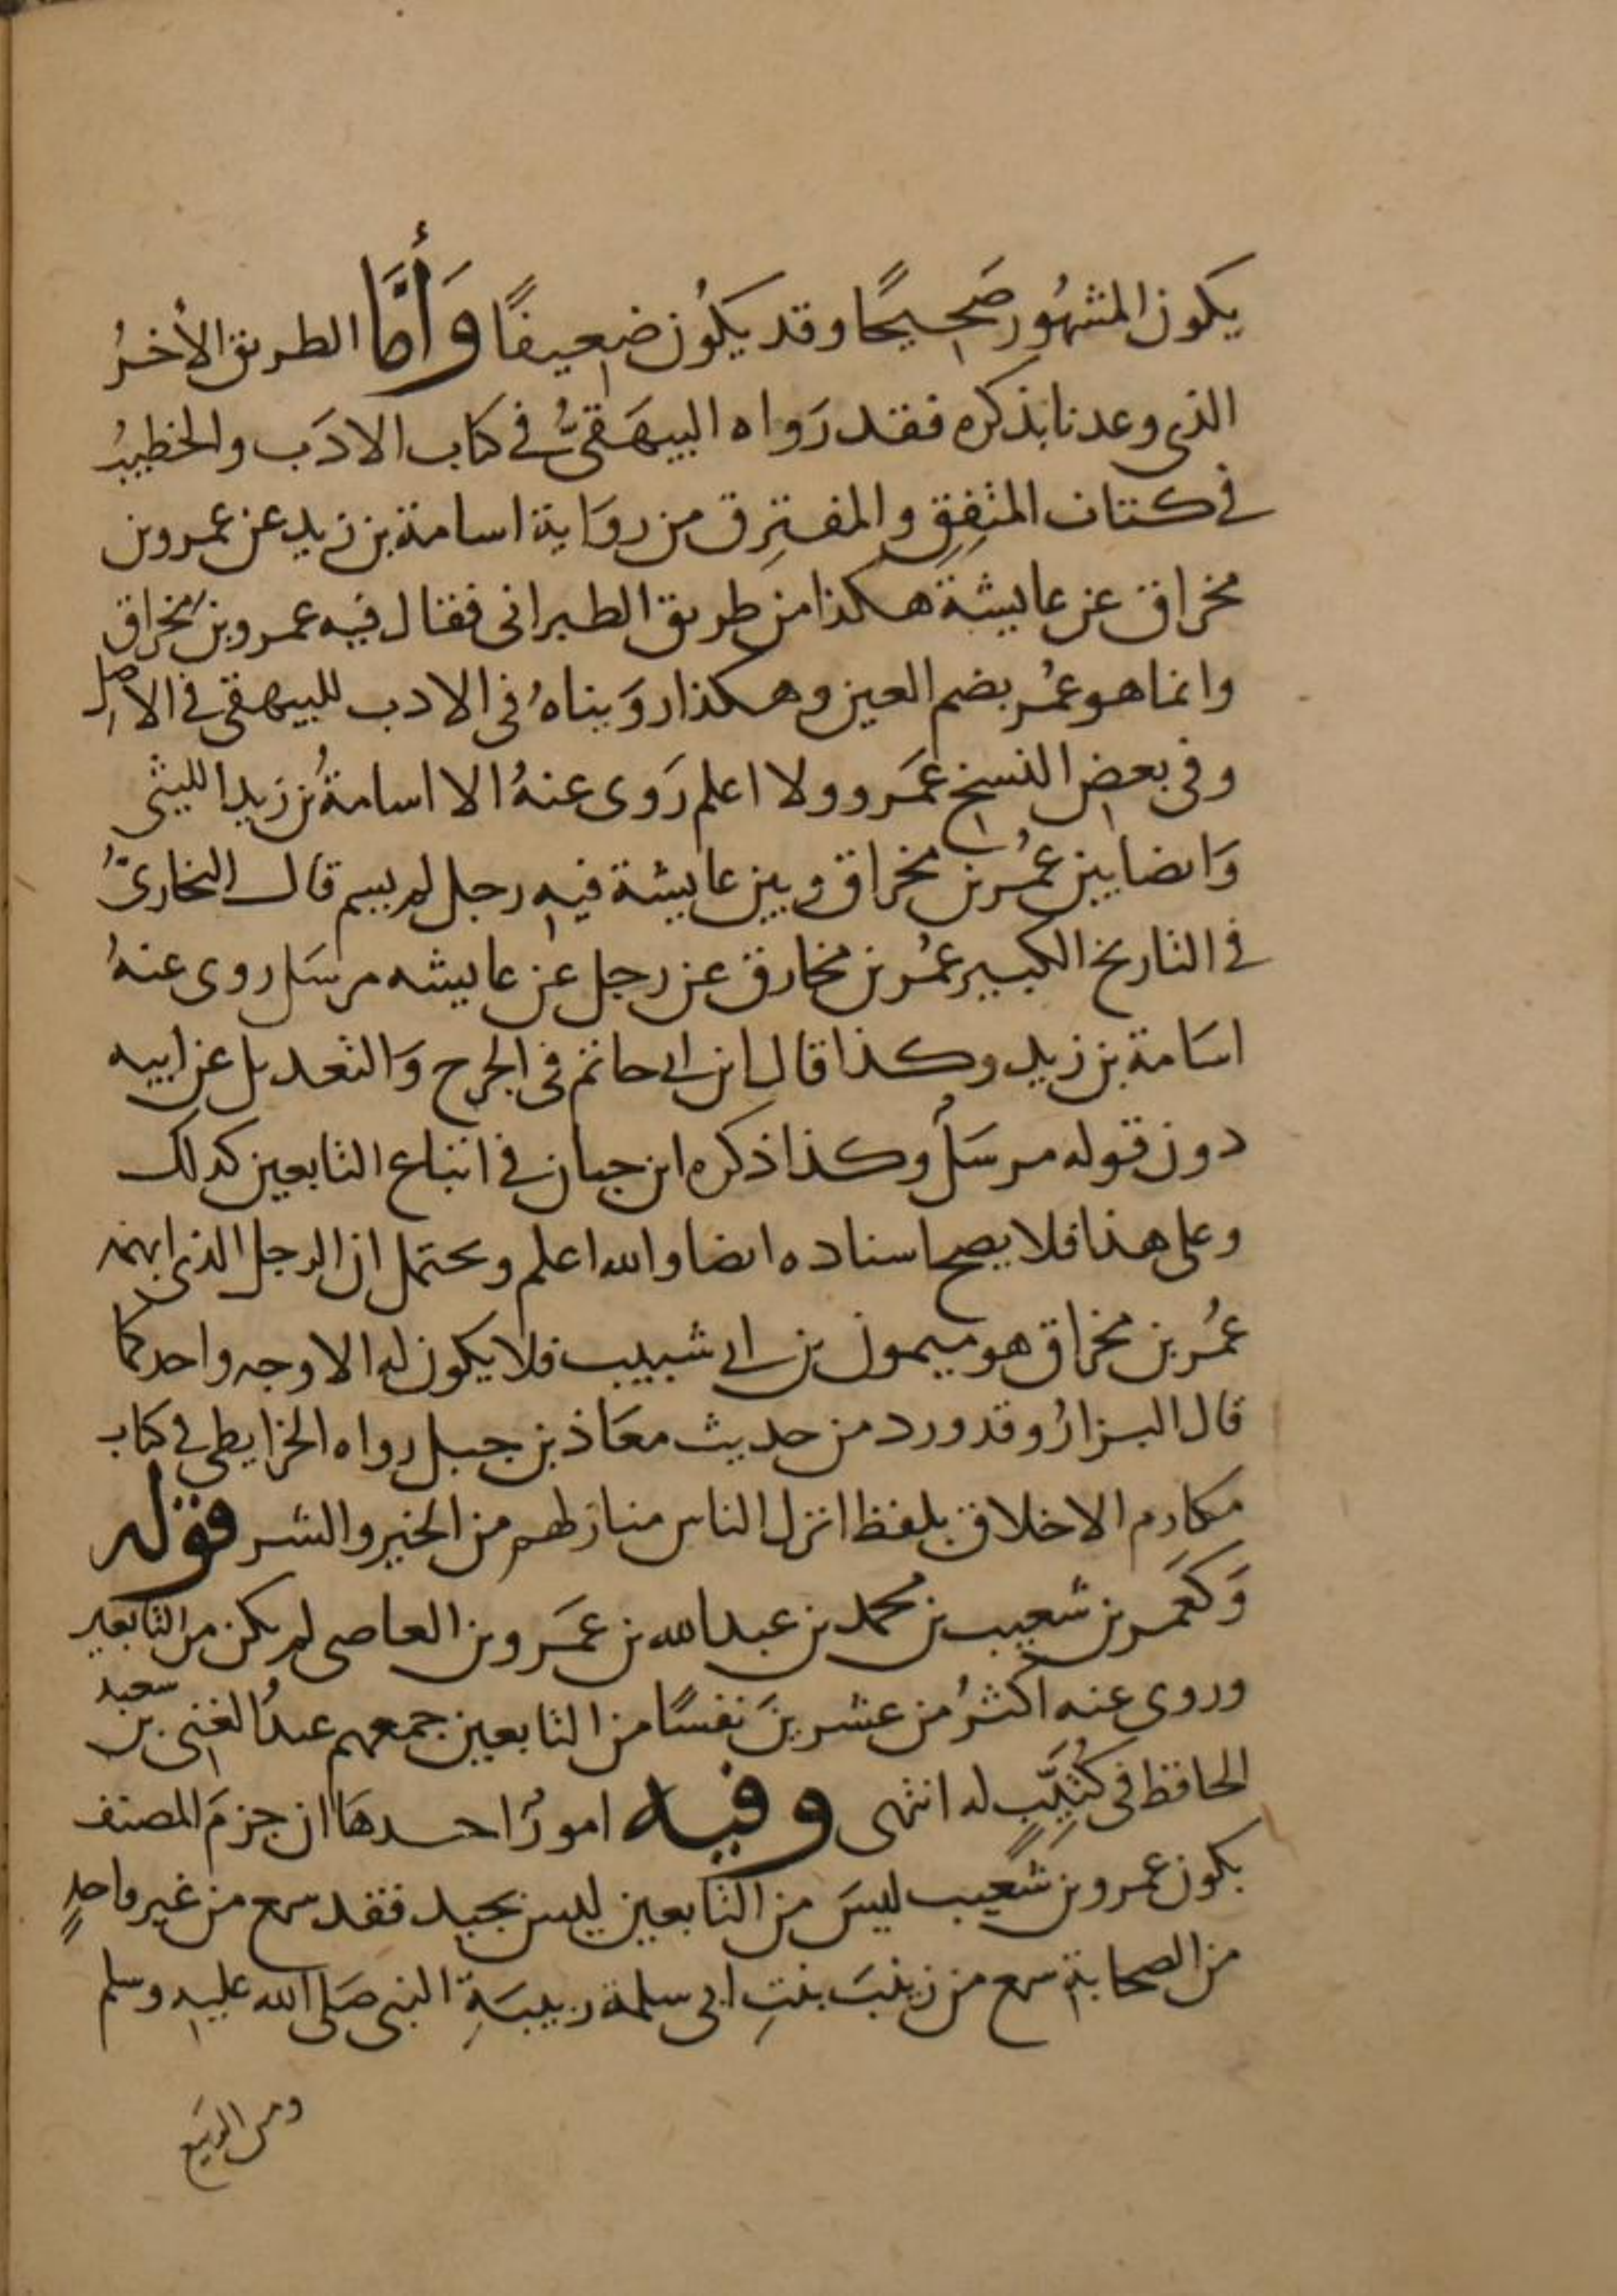 يكون المشهُور صَحيحًا وقد يكُون ضعيفًا وَأَمَّا الطريق الأخرُ
الذى وعدنا بذكره فقد رَواه البيهَقىُّ فى كتاب الادَب والخطيبُ
فى كتاب المتفِقِ والمفترِق من روَاية اسامة بن زيد عن عمرو بن
مخراق عن عايشة هكذا من طريق الطبرانى فقال فيه عمرو بن مخراق
وانما هو عمُر بضم العين وهكذا روَيناهُ فى الادب للبيهقى فى الاصل
وفى بعض النسخ عَمَرو ولا اعلم رَوى عنهُ الا اسامةُ بن زيد الليثى
وَايضا بين عمُر بن مخراق وبين عايشة فيه رجل لم يسم قال البخارىُّ
فى التاريخ الكبير عمُر بن مخارق عن رجل عن عايشه مرسَل روى عنهُ
اسَامة بن زيد وكذا قال ابن ابى حاتم فى الجرح وَالتعديل عن ابيه
دون قوله مرسَلُ وكذا ذكره ابن حبان فى اتباع التابعين كذلك
وعلى هذا فلا يصح اسناده ايضا والله اعلم ويحتمل ان الرجل الذى ابهمه
عمُر بن مخراق هو ميمون بن ابى شبيب فلا يكون له الا وجه واحد كما
قال البزارُ وقد ورد من حديث معَاذ بن جبل رواه الخرايطى فى كتاب
مكارم الاخلاق بلفظ انزل الناس منازلهم من الخير والشر قوله
وَكعَمر بن شعيب بن محمد بن عبد الله بن عمَرو بن العاصى لم يكن من التابعين
وروى عنه اكثرُ من عشرينَ نفسًا من التابعين جمعهم عبدُ الغنى بن سعيد
الحافظ فى كُتيِّب له انتهى وفيه امورٌ احدهَا ان جزمَ المصنف
بكون عمرو بن شعَيب ليسَ من التابعين ليس بجيد فقد سمع من غير واحدٍ
من الصحابة سمع من زينبَ بنتِ ابى سلمة ربيبَةِ النبى صَلى الله عليه وسلم
ومن الربيع